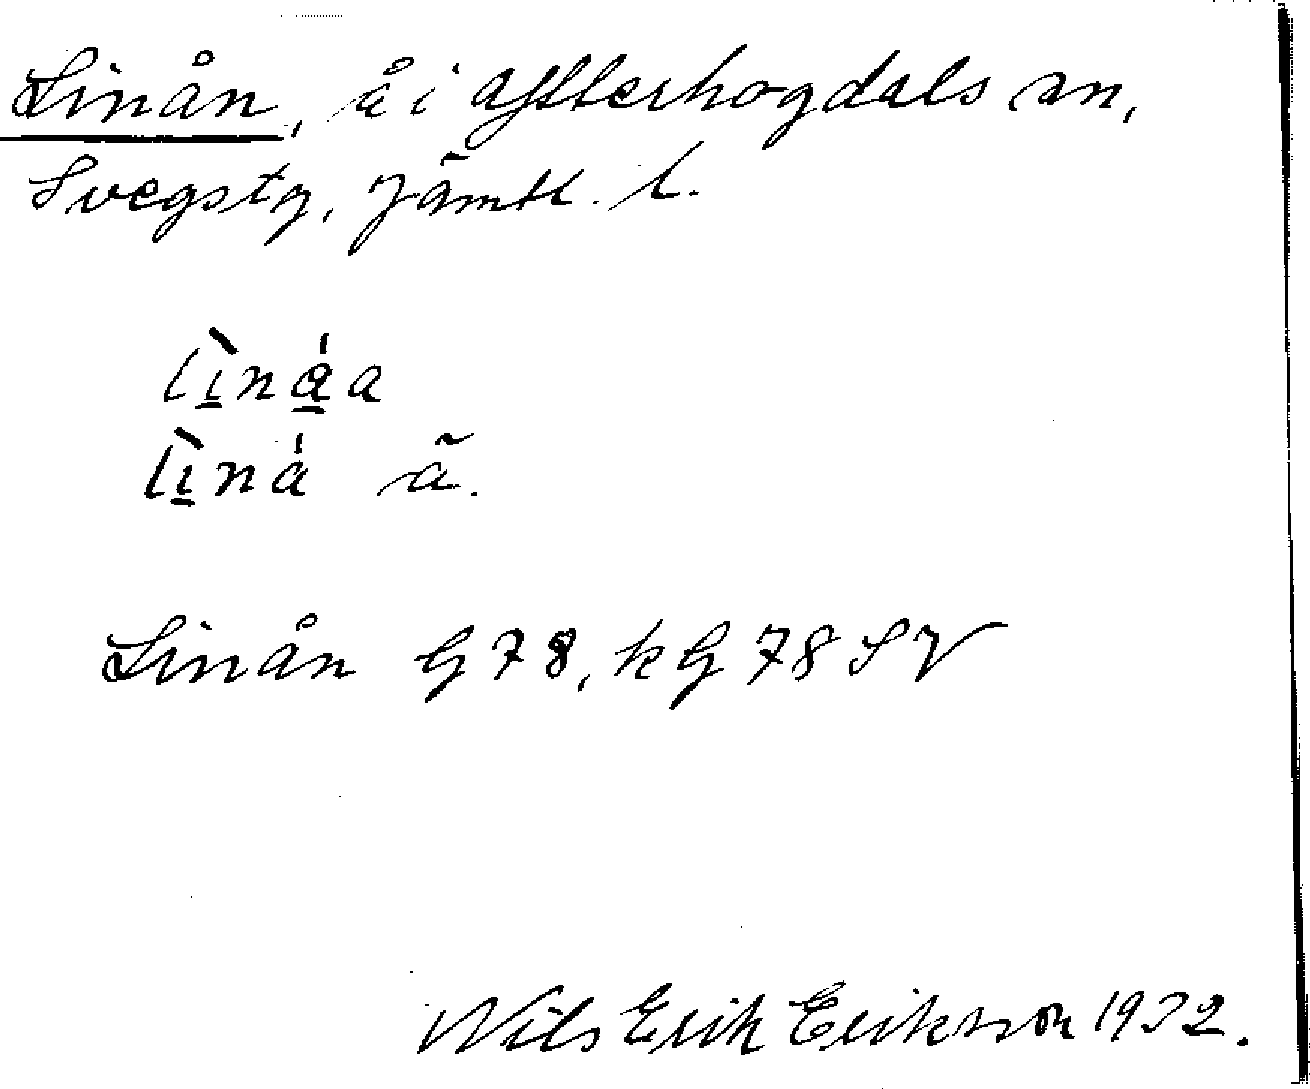 Linån, å i Ytterhogdals sn,
Svegs tg, Jämtl. l.
lìnáa
lìná ã.
Linån G 78, k G 78 SV
Nils Erik Eriksson 1932.